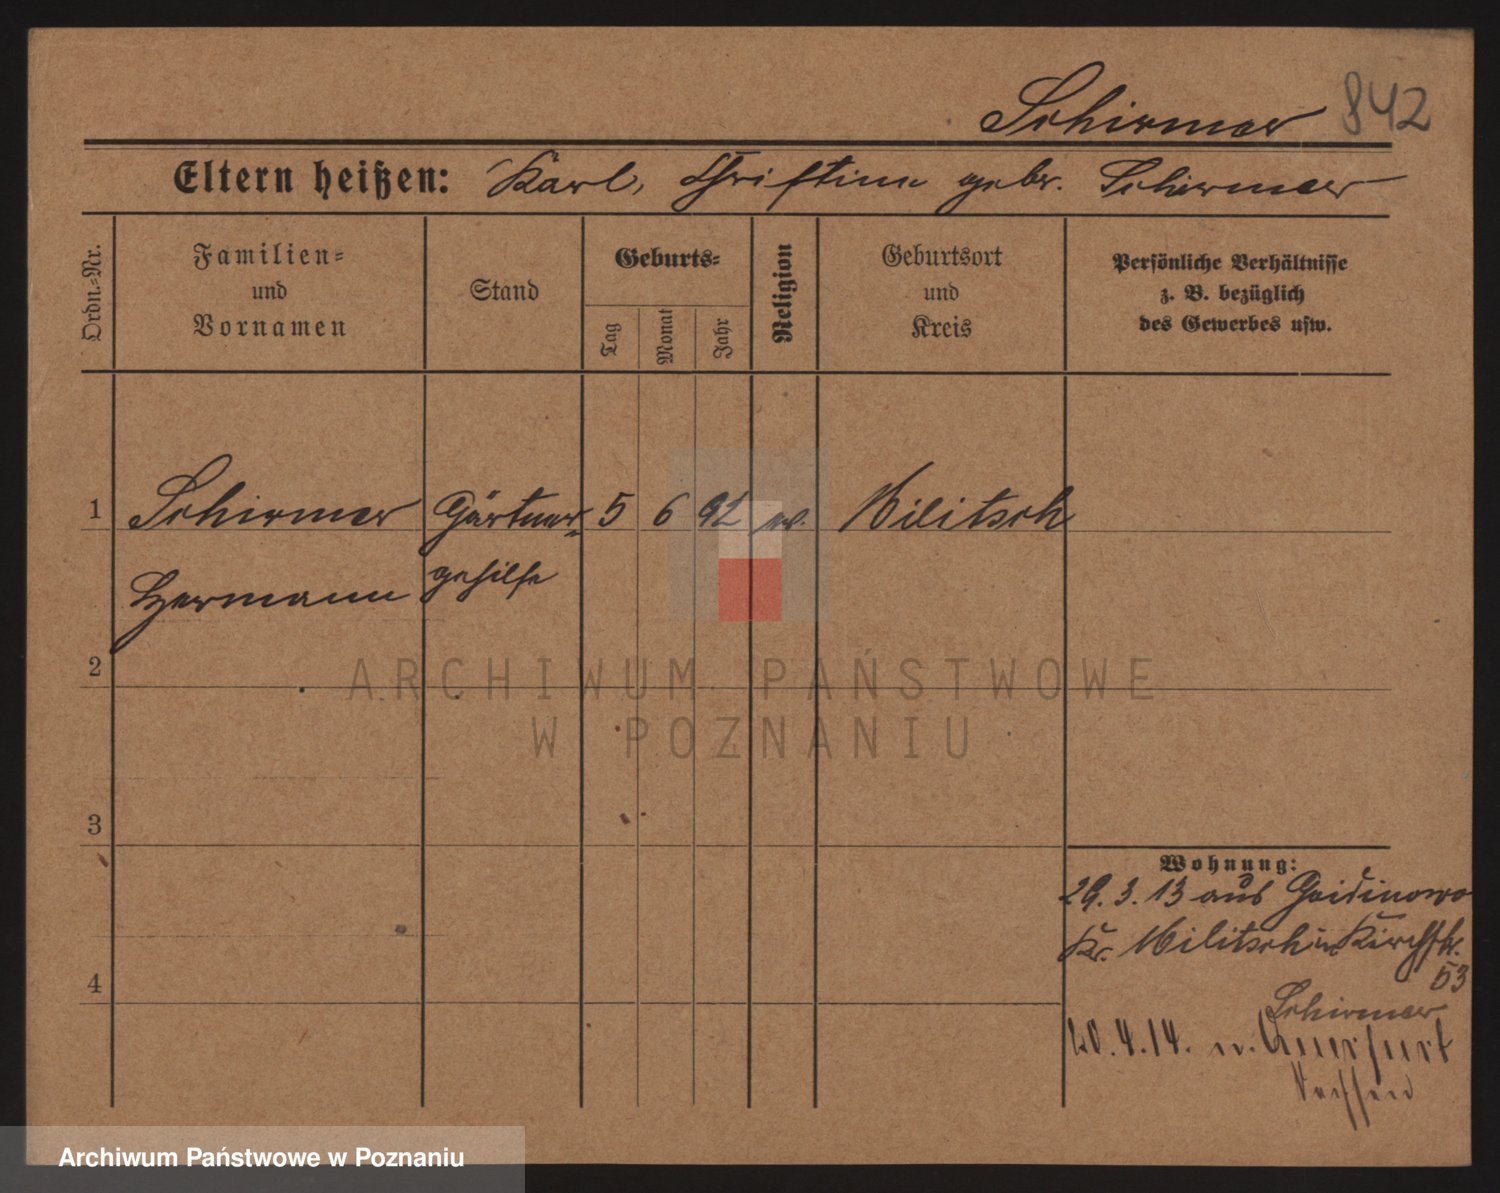 Schirmer 842
Eltern heißen: Karl, Christine gebr. Schirmer
Ordn.-Nr.
Familien-
und
Vornamen
Stand
Geburts-
Tag
Monat
Jahr
Religion
Geburtsort
und
Kreis
Persönliche Verhältnisse
z. B. bezüglich
des Gewerbes usw.
1 Schirmer Gärtner- 5 6 92 ev. Militsch
Hermann gehilfe
2
ARCHIWUM PAŃSTWOWE
W POZNANIU
3
4
Wohnung:
29.3.13 aus
Kr. Militsch in Kirchstr.
53
Schirmer
20.4.14. n. Querfurt
Archiwum Państwowe w Poznaniu